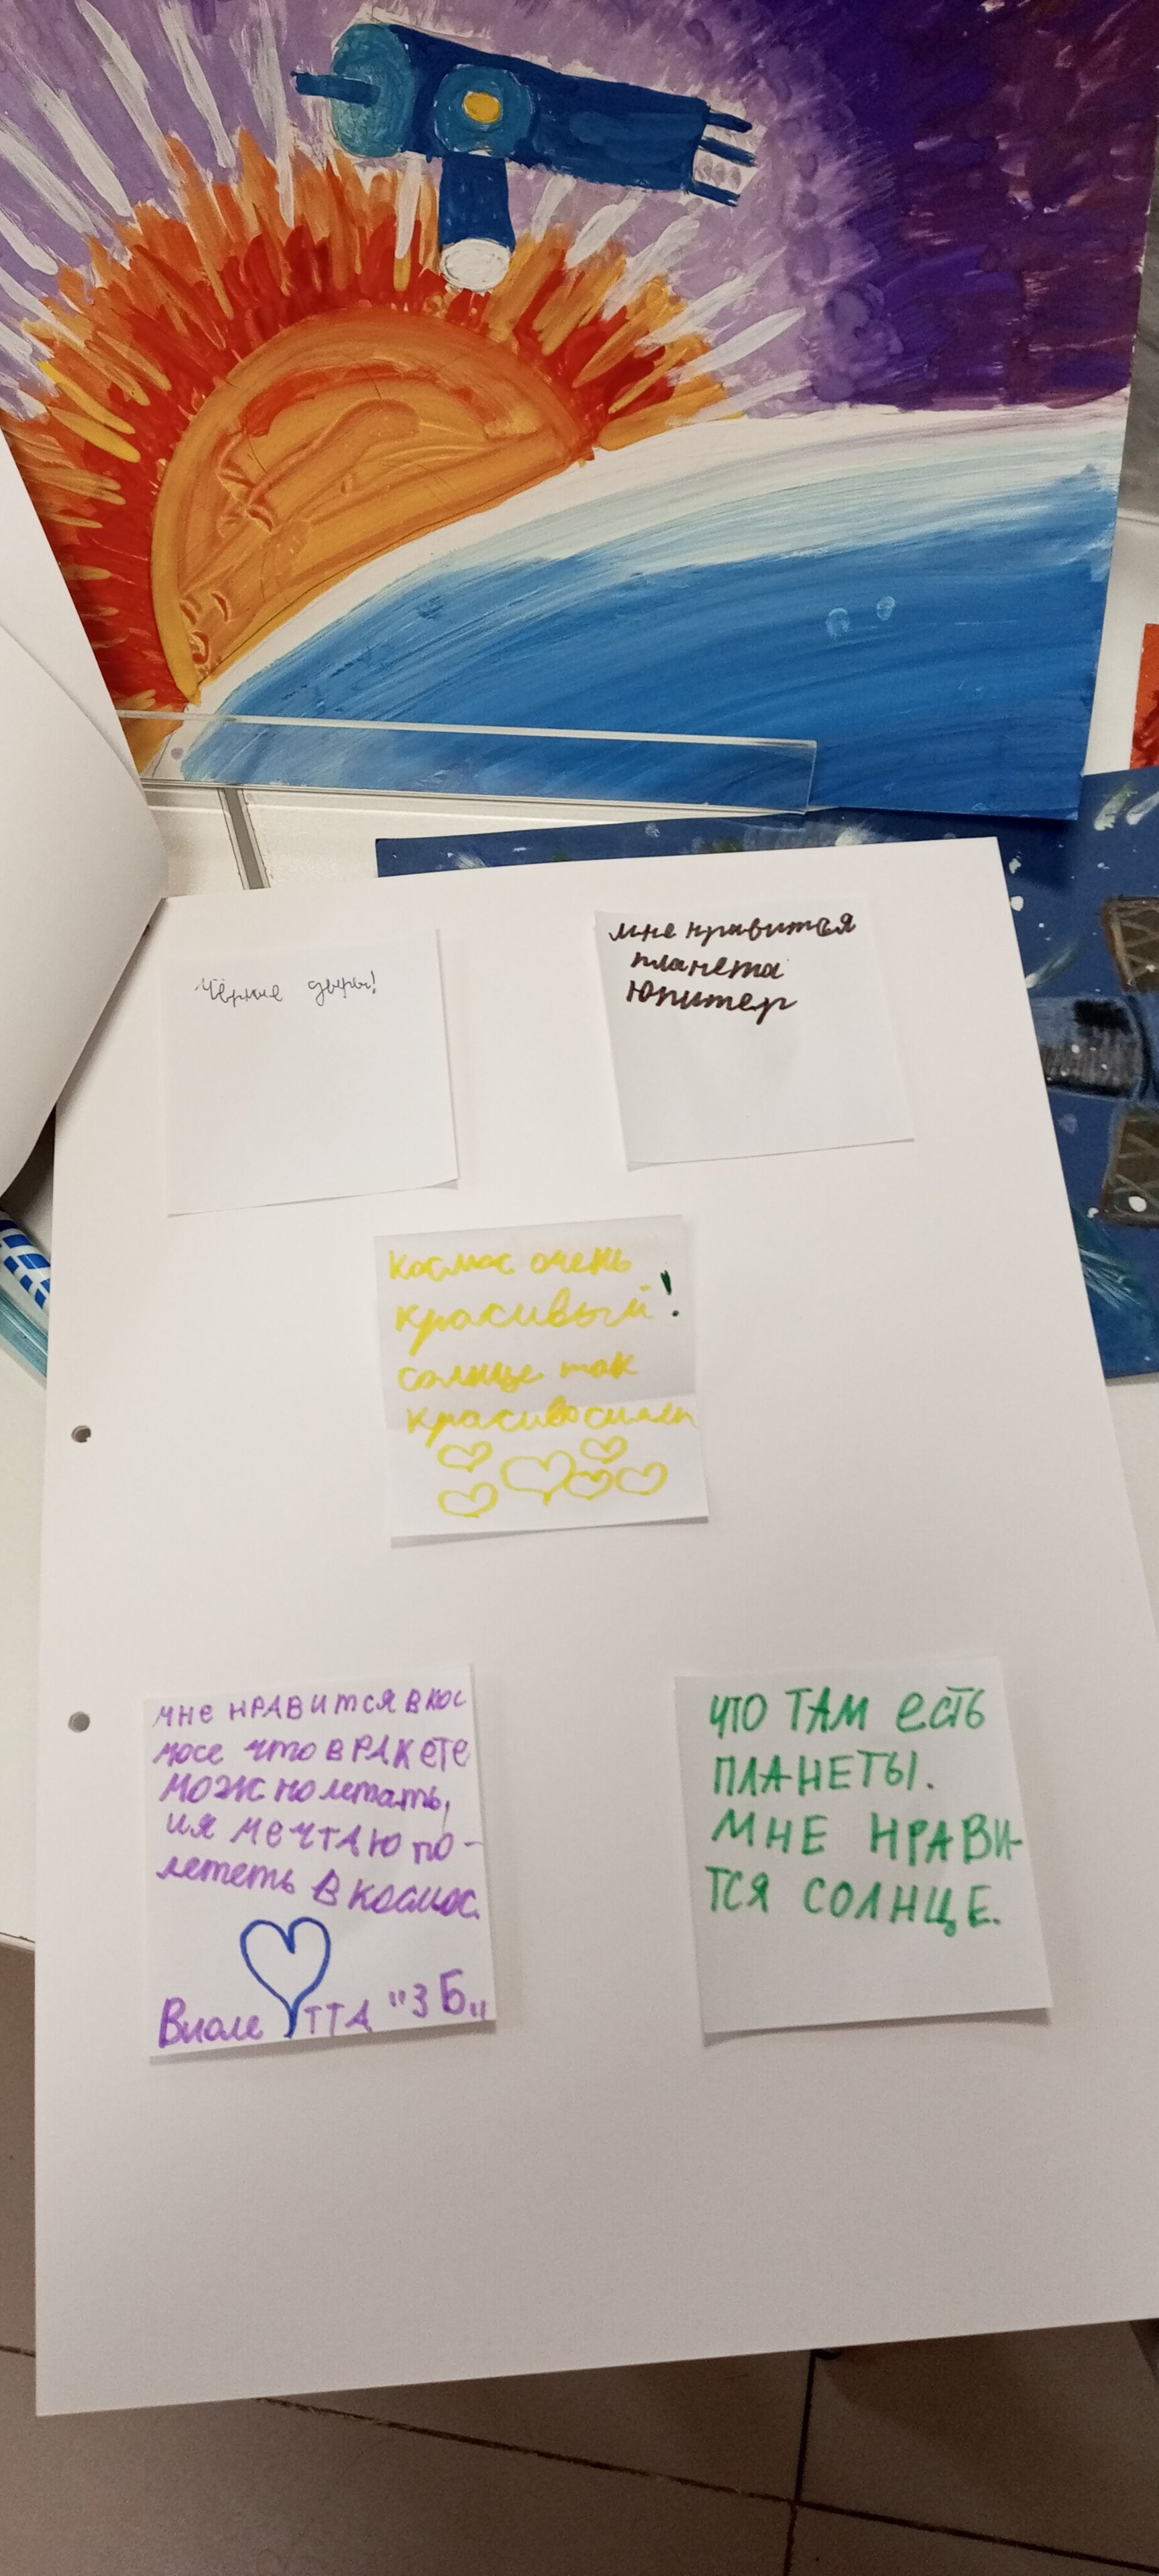 Чёрные дыры!
мне нравится
планета
Юпитер
космос очень
красивый!
солнце так
красиво сияет
мне нравится в кос
мосе что в ракете
можно летать,
и я мечтаю по-
лететь в космос.
Виолетта "3 Б"
что там есть
планеты.
мне нрави-
тся солнце.